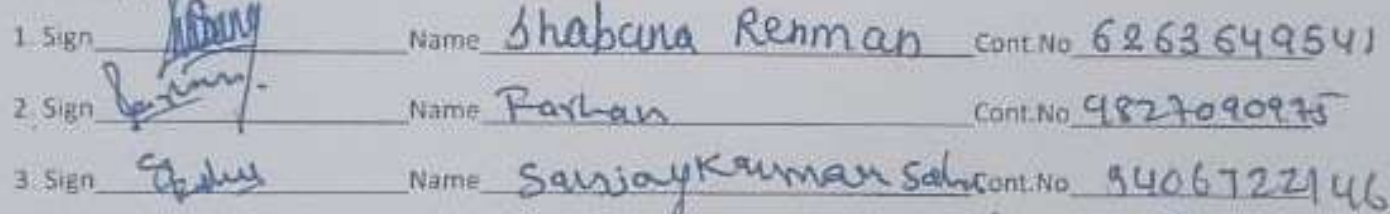 1. Sign Name Shabana Rehman Cont.No 6263649541
2. Sign Name Farhan Cont.No 9827090975
3. Sign Name Sanjay Kumar Sahu Cont.No 9406722146